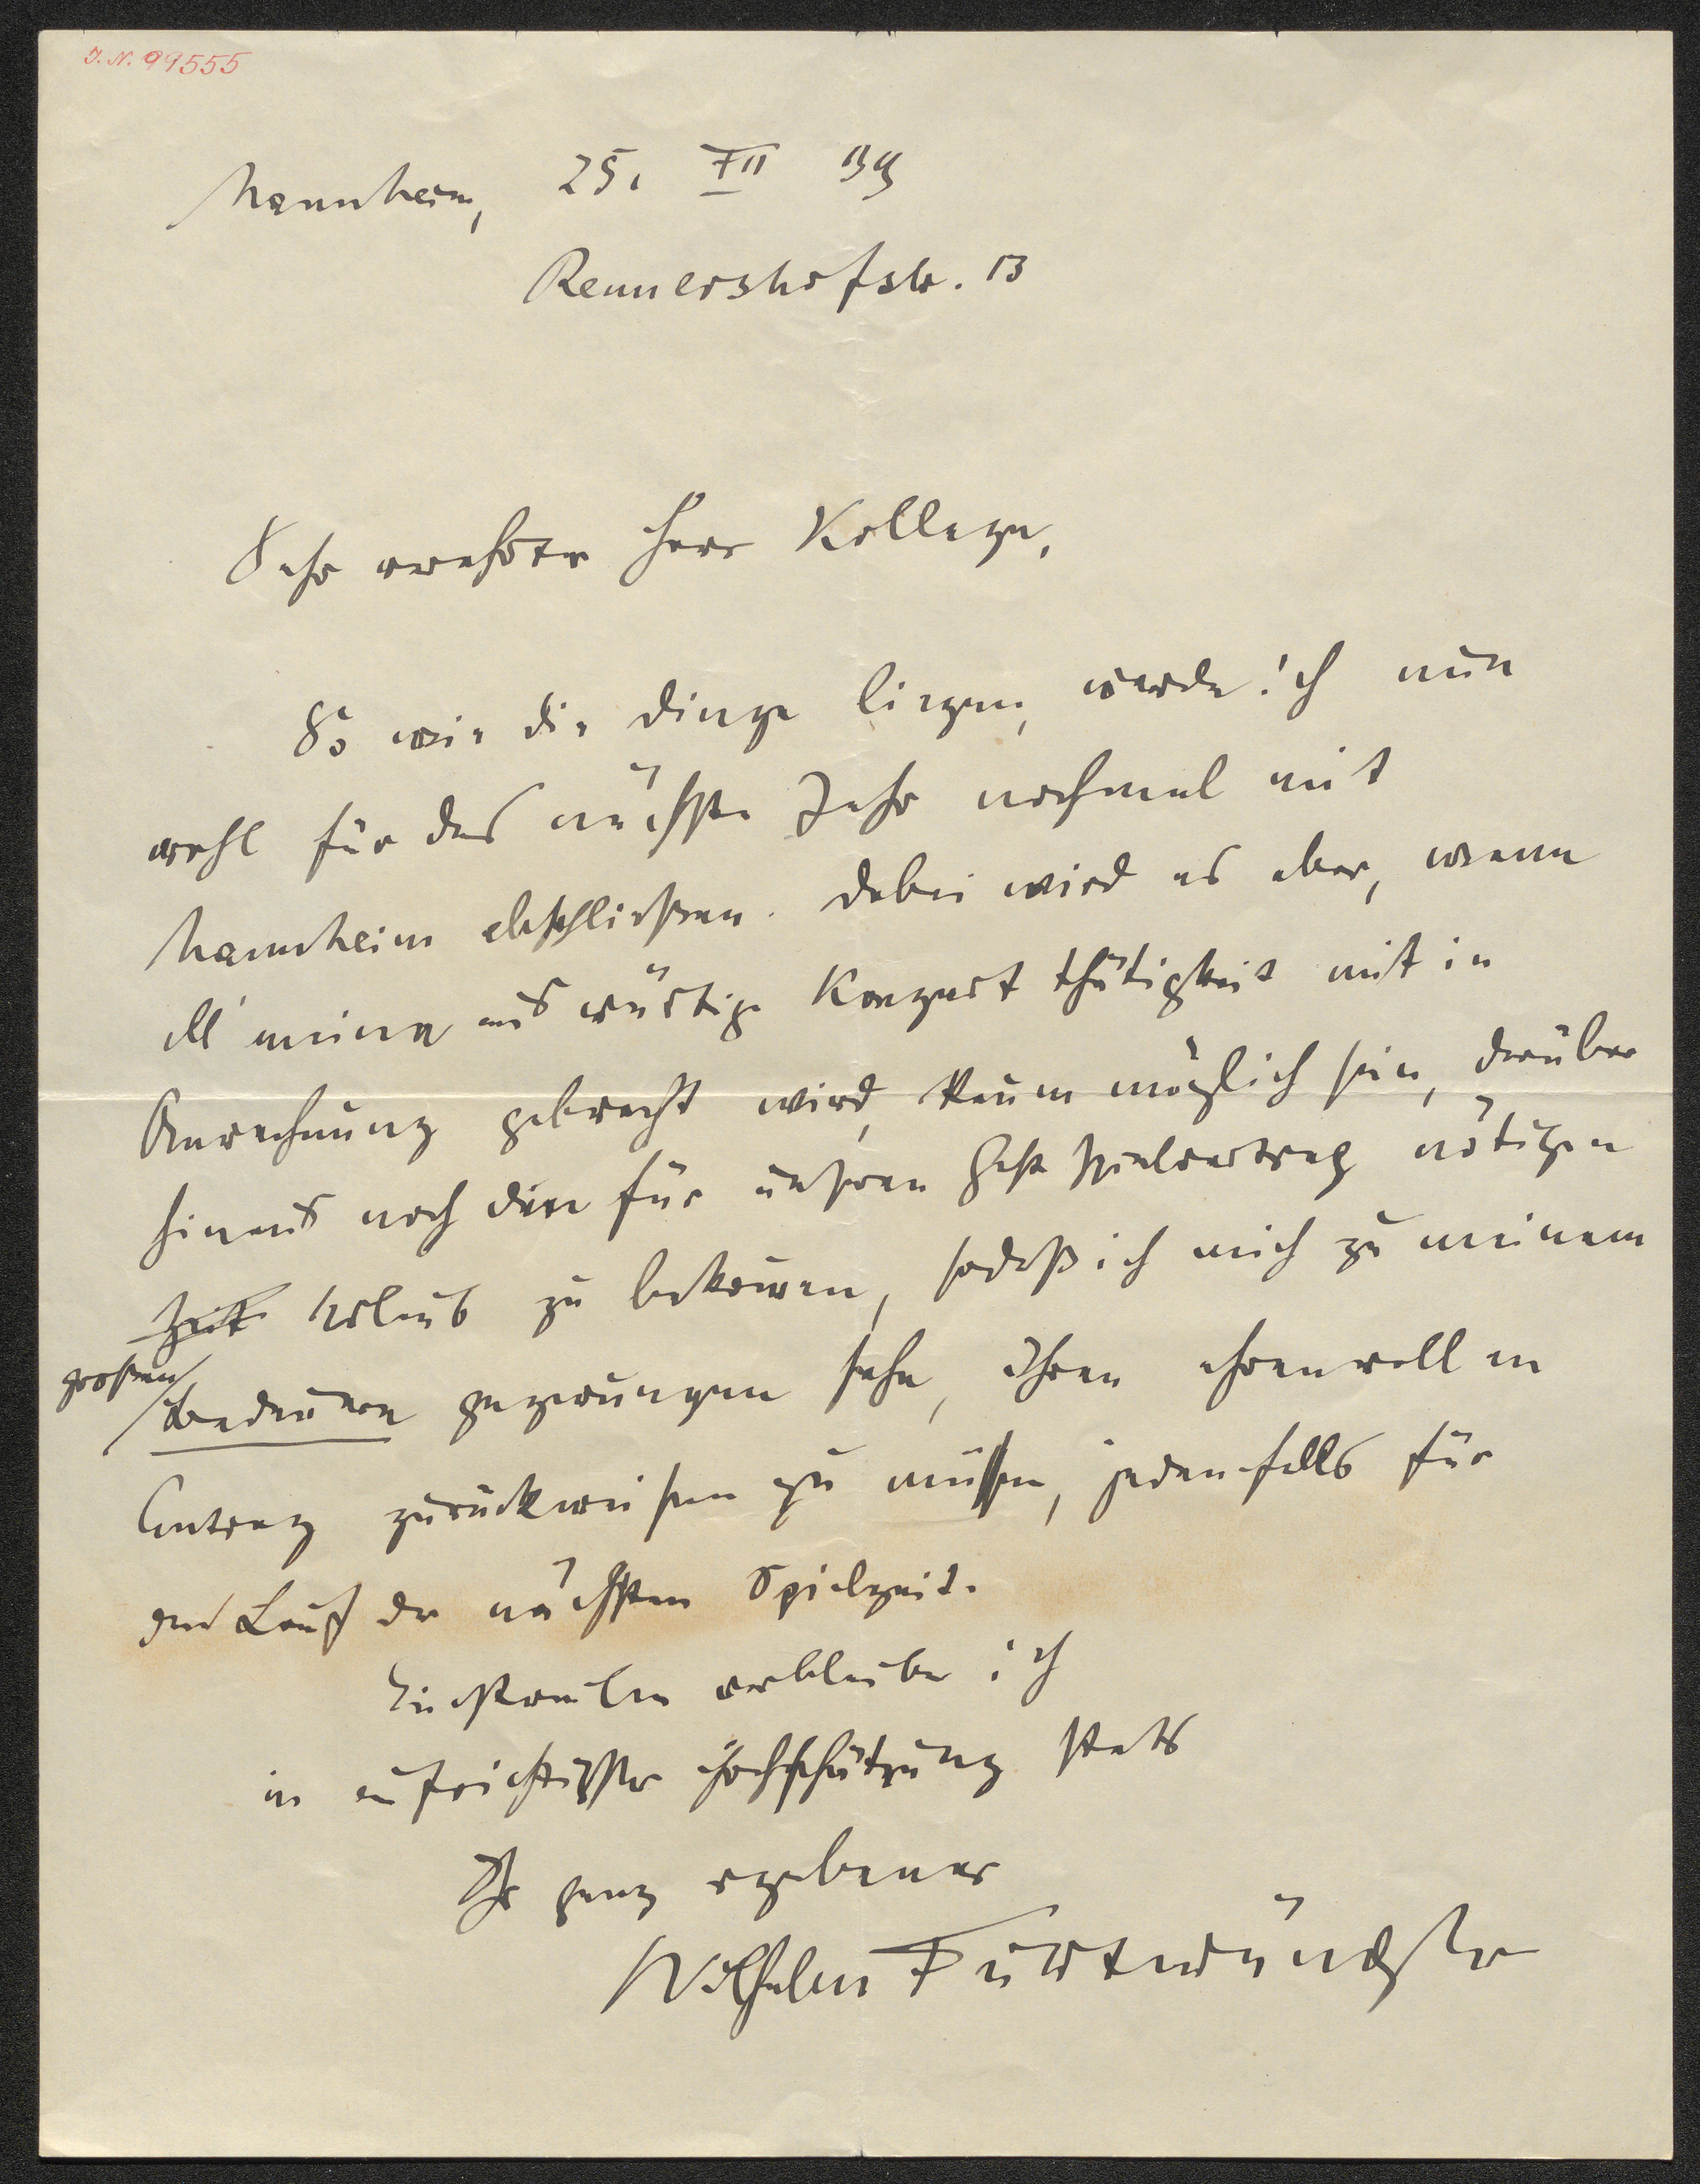 J. N. 99555
Mannheim, 25. XII 19
Rennershofstr. 13
Sehr verehrter Herr Kollege,
So wie die Dinge liegen, werde ich nun
wohl für das nächste Jahr nochmal mit
Mannheim abschließen. Dabei wird es aber, wenn
all' meine auswärtige Konzertthätigkeit mit in
Anrechnung gebracht wird, kaum möglich sein, darüber
hinaus noch den für unseren Gastspielvertrag nötigen
Zeit Urlaub zu bekommen, sodaß ich mich zu meinem
großen
Bedauern gezwungen sehe, Ihren ehrenvollen
Antrag zurückweisen zu müssen, jedenfalls für
den Lauf der nächsten Spielzeit.
verbleibe ich
in aufrichtigster Hochschätzung stets
Ihr ganz ergebener
Wilhelm Furtwängler